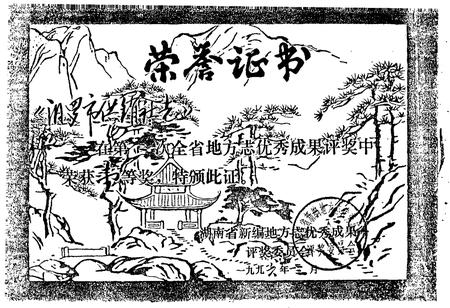 荣誉证书
《汨罗市
在第二次全省地方志优秀成果评奖中
荣获 等奖，特颁此证。
湖南省新编地方志优秀成果
评奖委员会
一九九六年 月